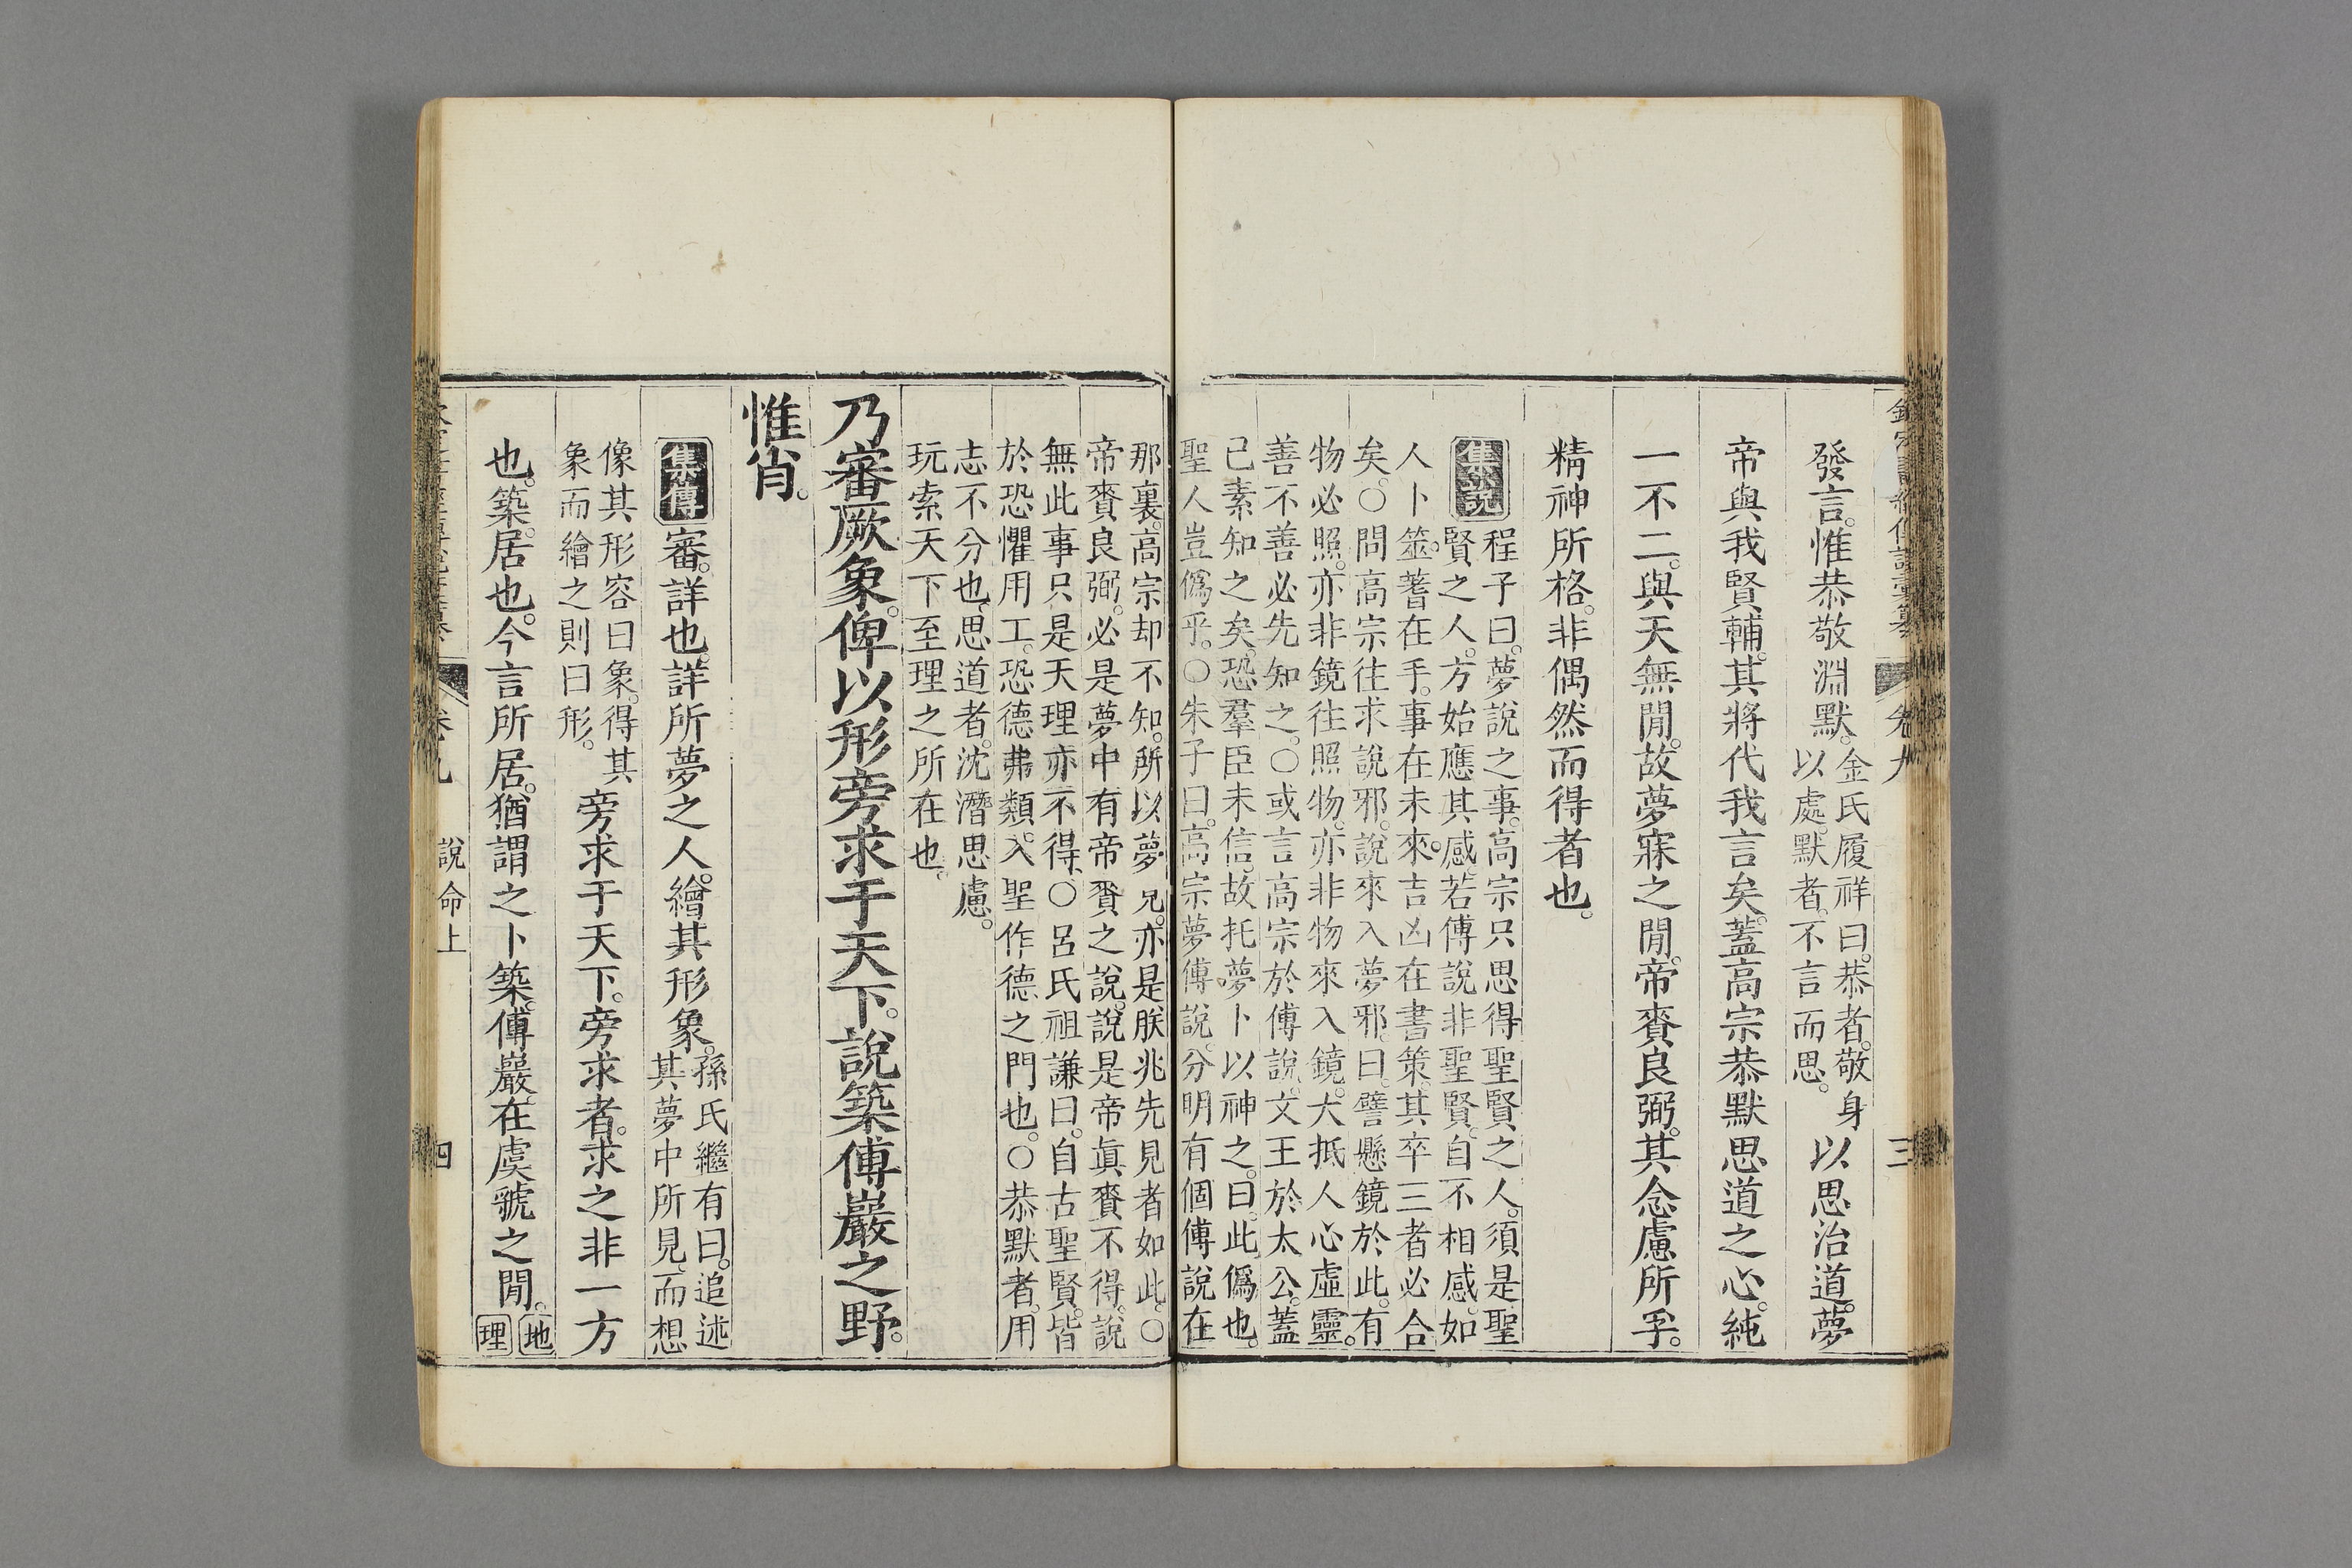 發言。惟恭敬淵默。金氏履祥曰。恭者。敬身以處。默者。不言而思。以思治道。夢
帝與我賢輔。其將代我言矣。蓋高宗恭默思道之心。純
一不二。與天無閒。故夢寐之閒。帝賚良弼。其念慮所孚。
精神所格。非偶然而得者也。
集說
程子曰。夢說之事。高宗只思得聖賢之人。須是聖
賢之人。方始應其感。若傅說非聖賢。自不相感。如
人卜筮。蓍在手。事在未來。吉凶在書策。其卒三者必合
矣。○問高宗往求說邪。說來入夢邪。曰。譬懸鏡於此。有
物必照。亦非鏡往照物。亦非物來入鏡。大抵人心虛靈。
善不善必先知之。○或言高宗於傅說。文王於太公。蓋
已素知之矣。恐羣臣未信。故托夢卜以神之。曰。此偽也。
聖人豈偽乎。○朱子曰。高宗夢傅說。分明有個傅說在
那裏。高宗却不知。所以夢見。亦是朕兆先見者如此。○
帝賚良弼。必是夢中有帝賚之說。說是帝眞賚不得。說
無此事只是天理亦不得。○呂氏祖謙曰。自古聖賢。皆
於恐懼用工。恐德弗類。入聖作德之門也。○恭默者。用
志不分也。思道者。沈潛思慮。
玩索天下至理之所在也。
乃審厥象。俾以形旁求于天下。說築傅巖之野。
惟肖。
集傳 審。詳也。詳所夢之人。繪其形象。孫氏繼有曰。追述其夢中所見。而想
像其形容曰象。得其象而繪之則曰形。旁求于天下。旁求者。求之非一方
也。築。居也。今言所居。猶謂之卜築。傅巖。在虞虢之閒。地理
卷九 說命上 四
卷九 三